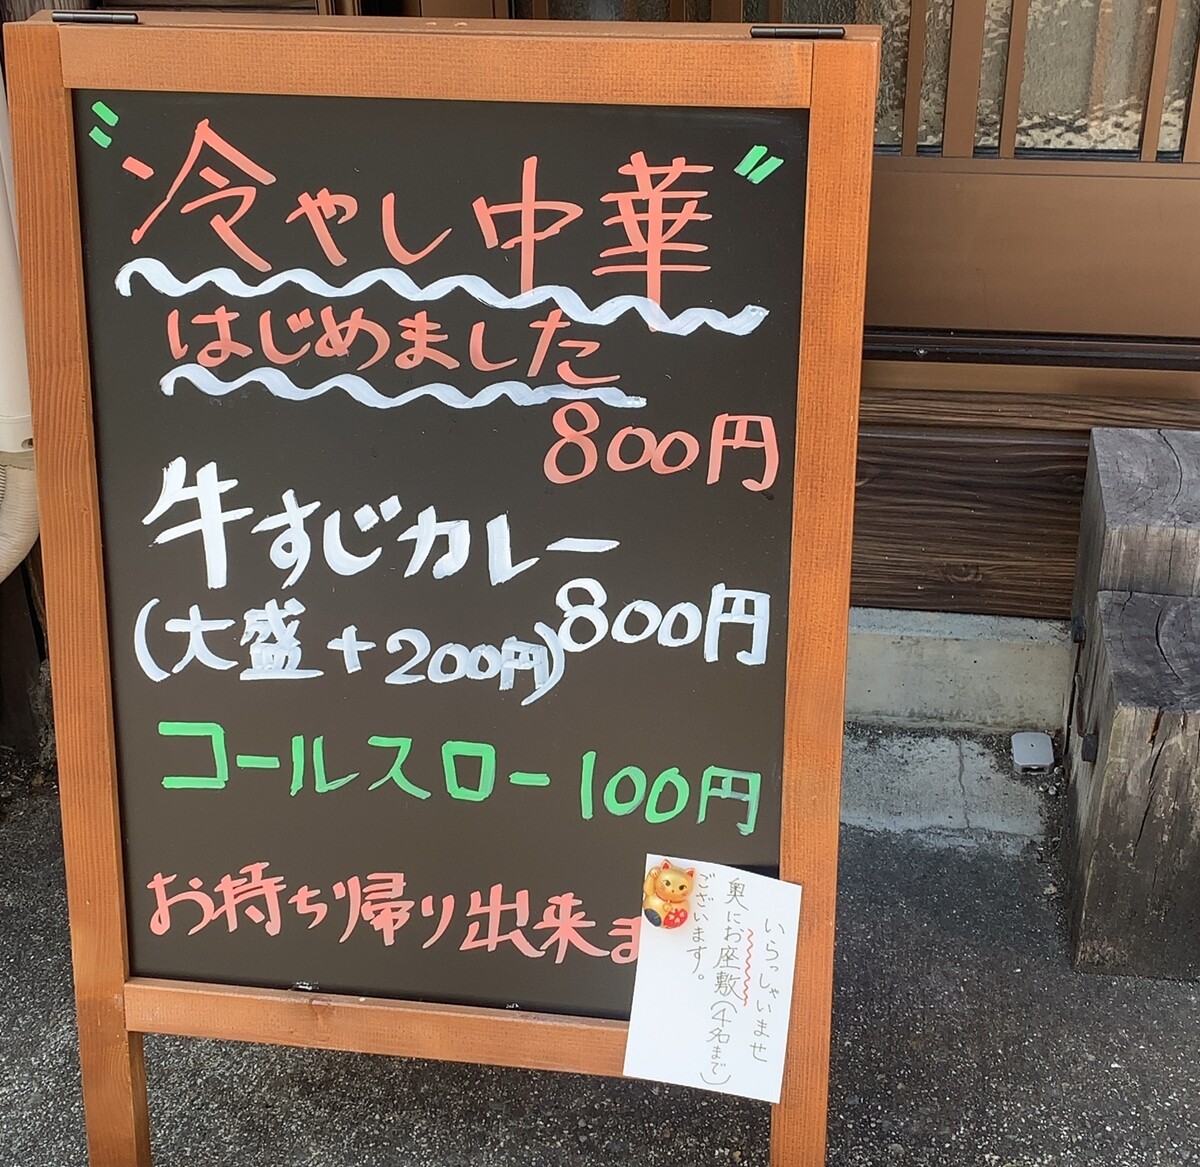 冷やし中華
はじめました
800円
牛すじカレー
800円
(大盛+200円)
コールスロー 100円
お持ち帰り出来ま
いらっしゃいませ
奥にお座敷(4名まで)
ございます。